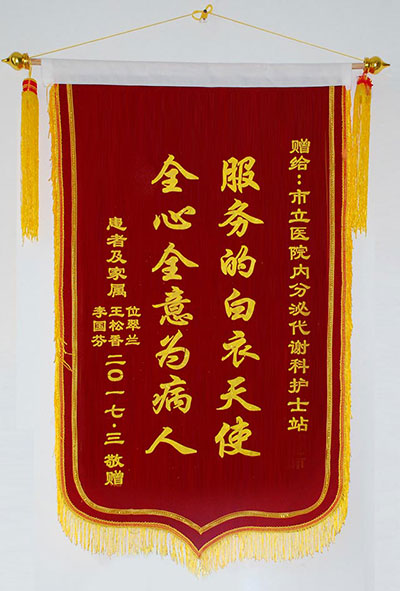 赠给：市立医院内分泌代谢科护士站
服务的白衣天使
全心全意为病人
患者及家属
位翠兰
王松香
李国芬
二〇一七·三 敬赠